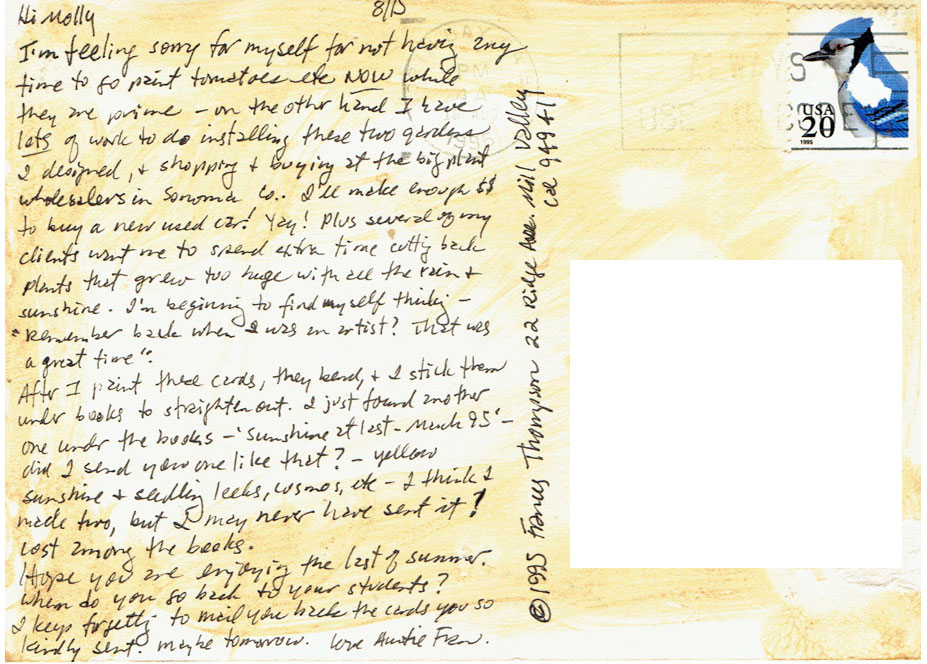 Hi Molly
8/15
I'm feeling sorry for myself for not having any
time to go paint tomatoes etc NOW while
they are prime – on the other hand I have
lots of work to do installing these two gardens
I designed, + shopping + buying at the big plant
wholesalers in Sonoma Co.. I'll make enough $$
to buy a new used car! Yay! Plus several of my
clients want me to spend extra time cutting back
plants that grew too huge with all the rain +
sunshine. I'm beginning to find myself thinking –
"Remember back when I was an artist? That was
a great time".
After I paint these cards, they bend, + I stick them
under books to straighten out. I just found another
one under the books – 'Sunshine at last – March 95' –
did I send you one like that? – yellow
sunshine + seedling leeks, cosmos, etc – I think I
made two, but I may never have sent it!
Lost among the books.
Hope you are enjoying the last of summer.
When do you go back to your students?
I keep forgetting to mail you back the cards you so
kindly sent. Maybe tomorrow. Love Auntie Fran.
© 1995 Frances Thompson 22 Ridge Mill Valley
Cal 94941
PM
ALWAYS
USE ZIP CODE
USA
20
1995